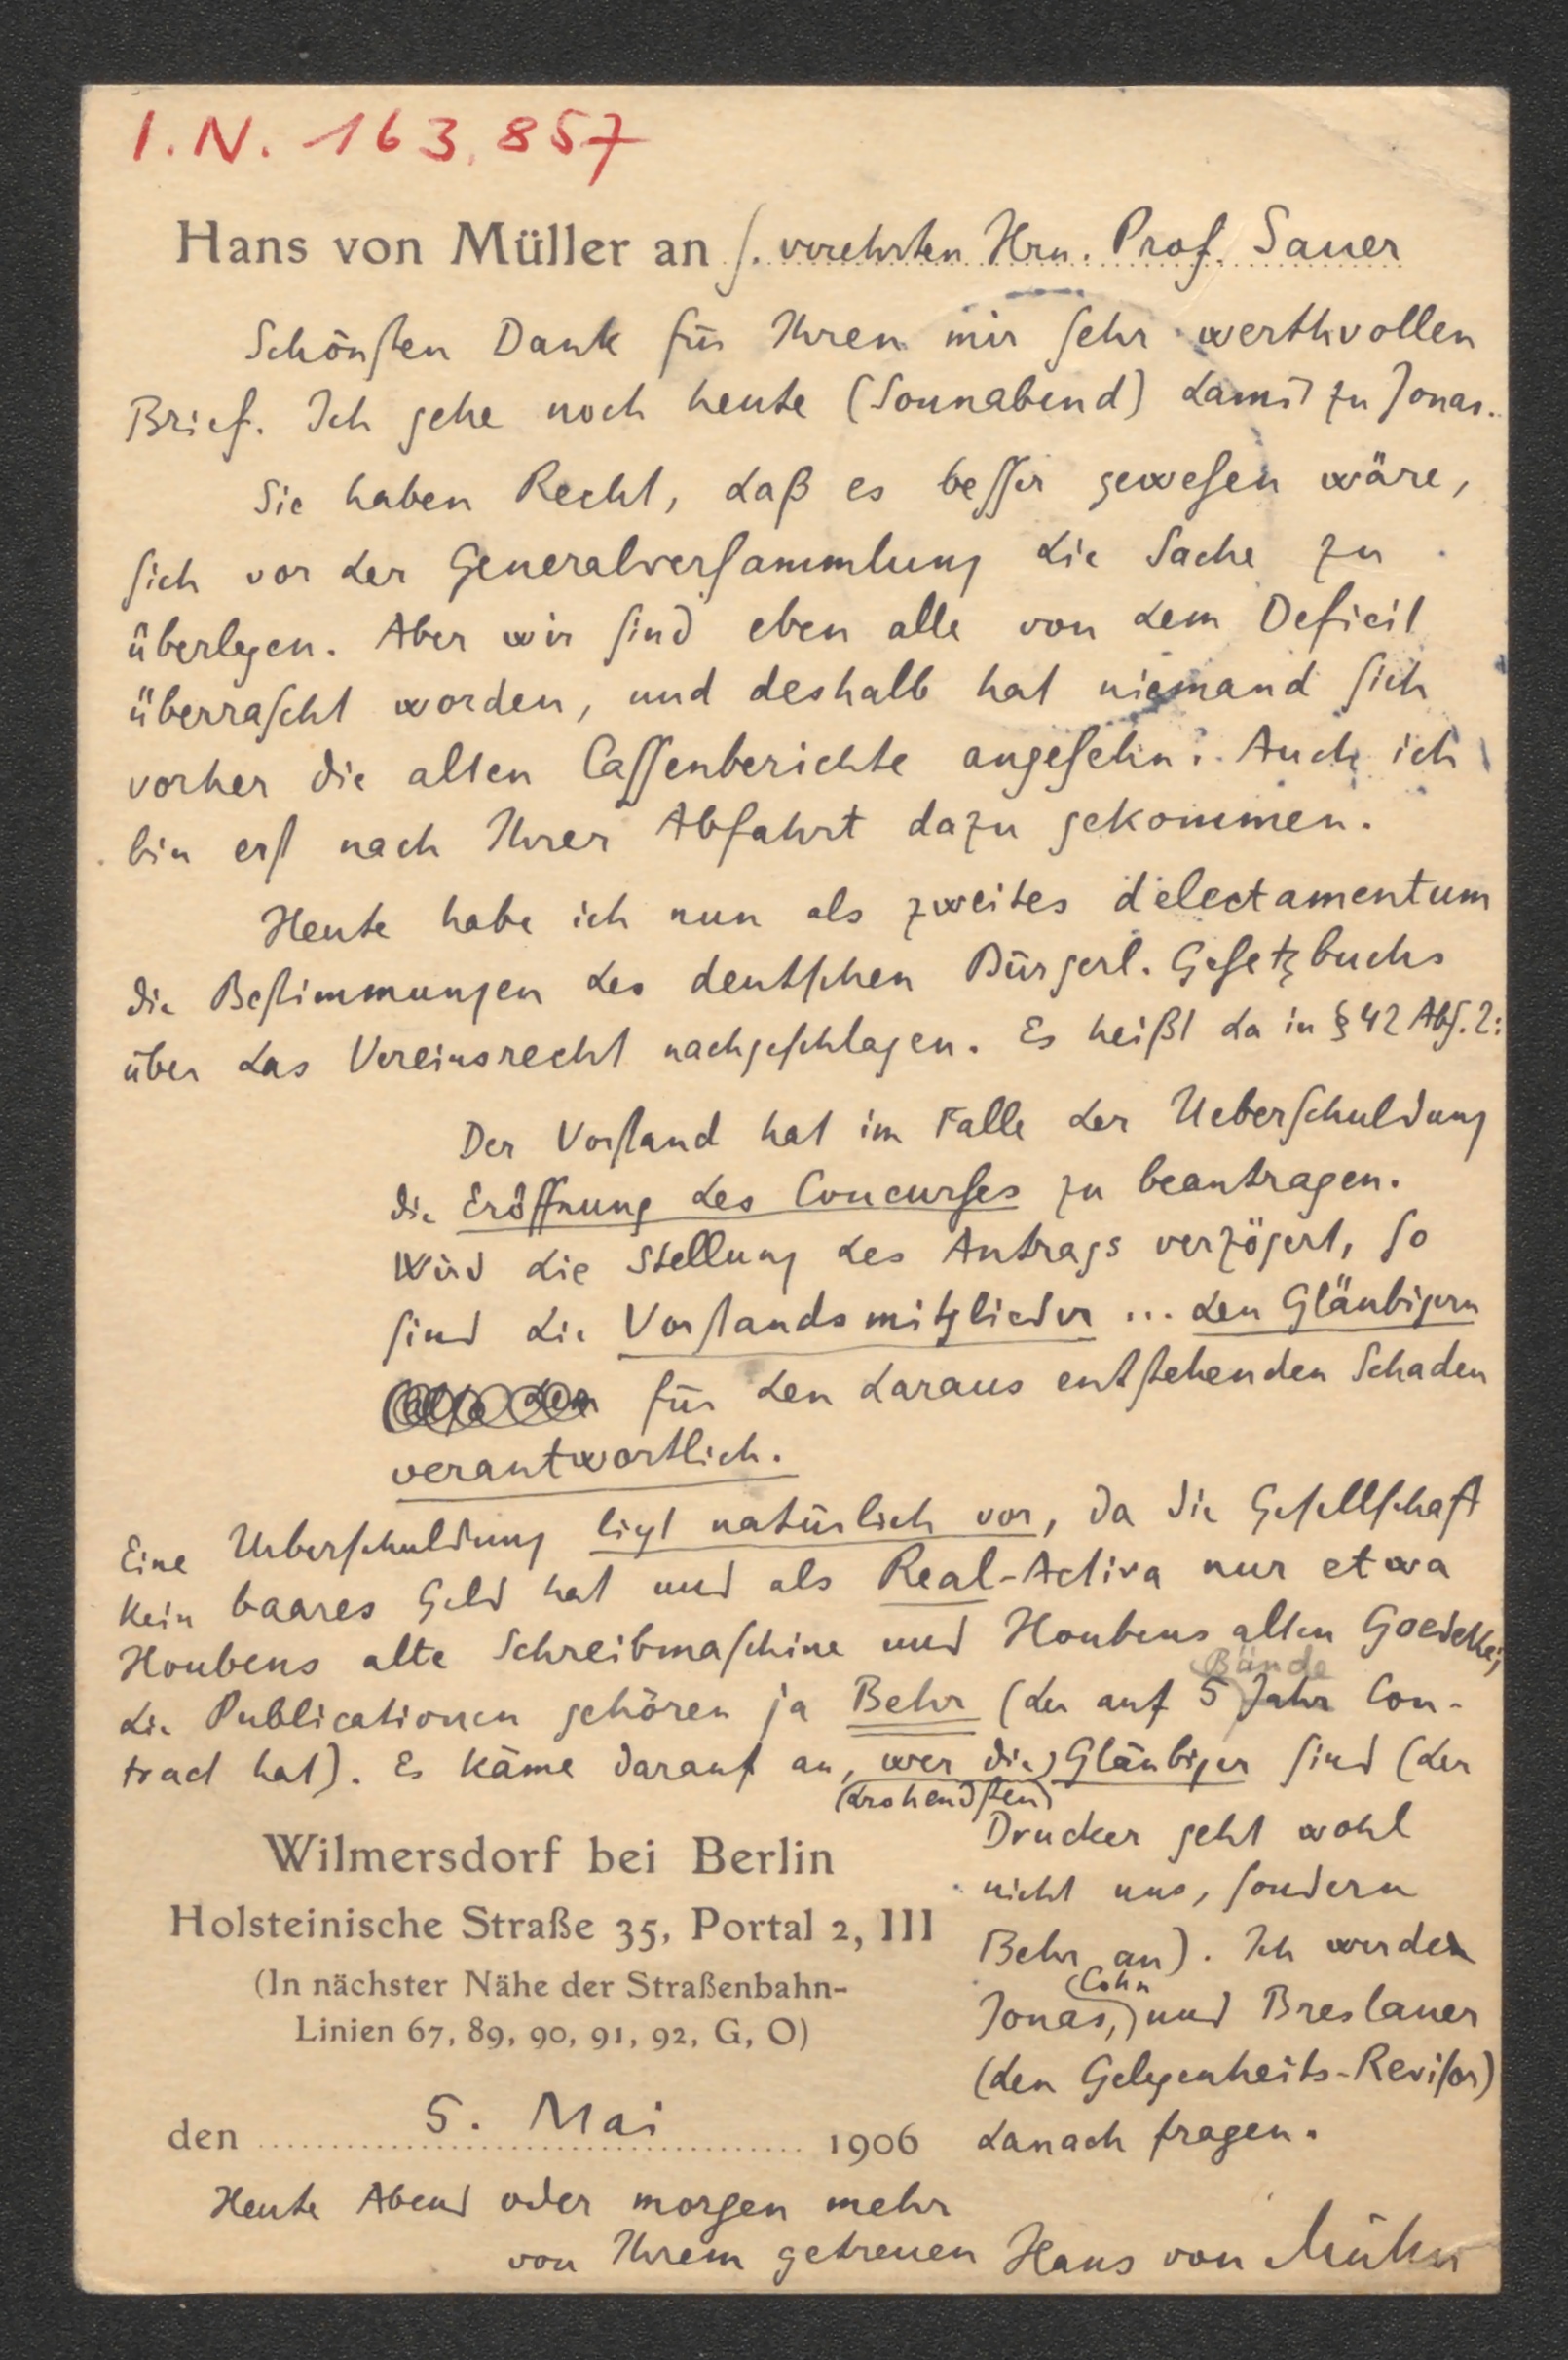 I.N. 163.857
Hans von Müller an s. verehrten Hrn. Prof. Sauer
Schönsten Dank für Ihren mir sehr werthvollen
Brief. Ich gehe noch heute (Sonnabend) damit zu Jonas.
Sie haben Recht, daß es besser gewesen wäre,
sich vor der Generalversammlung die Sache zu
überlegen. Aber wir sind eben alle von dem Deficit
überrascht worden, und deshalb hat niemand sich
vorher die alten Cassenberichte angesehn. Auch ich
bin erst nach Ihrer Abfahrt dazu gekommen.
Heute habe ich nun als zweites delectamentum
die Bestimmungen des deutschen Bürgerl. Gesetzbuchs
über das Vereinsrecht nachgeschlagen. Es heißt da in § 42 Abs. 2:
Der Vorstand hat im Falle der Ueberschuldung
die Eröffnung des Concurses zu beantragen.
Wird die Stellung des Antrags verzögert, so
sind die Vorstandsmitglieder ... den Gläubigern
für den daraus entstehenden Schaden
verantwortlich.
Eine Ueberschuldung ligt natürlich vor, da die Gesellschaft
kein baares Geld hat und als Real-Activa nur etwa
Houbens alte Schreibmaschine und Houbens alten Goedeke;
Bände
die Publicationen gehören ja Behr (der auf 5 Jahr Con-
tract hat). Es käme darauf an, wer die Gläubiger sind (der
(drohendsten)
Drucker geht wohl
nicht uns, sondern
Behr an). Ich werde
Cohn
Jonas, und Breslauer
(den Gelegenheits-Revisor)
danach fragen.
Wilmersdorf bei Berlin
Holsteinische Straße 35, Portal 2, III
(In nächster Nähe der Straßenbahn-
Linien 67, 89, 90, 91, 92, G, O)
den 5. Mai 1906
Heute Abend oder morgen mehr
von Ihrem getreuen Hans von Müller